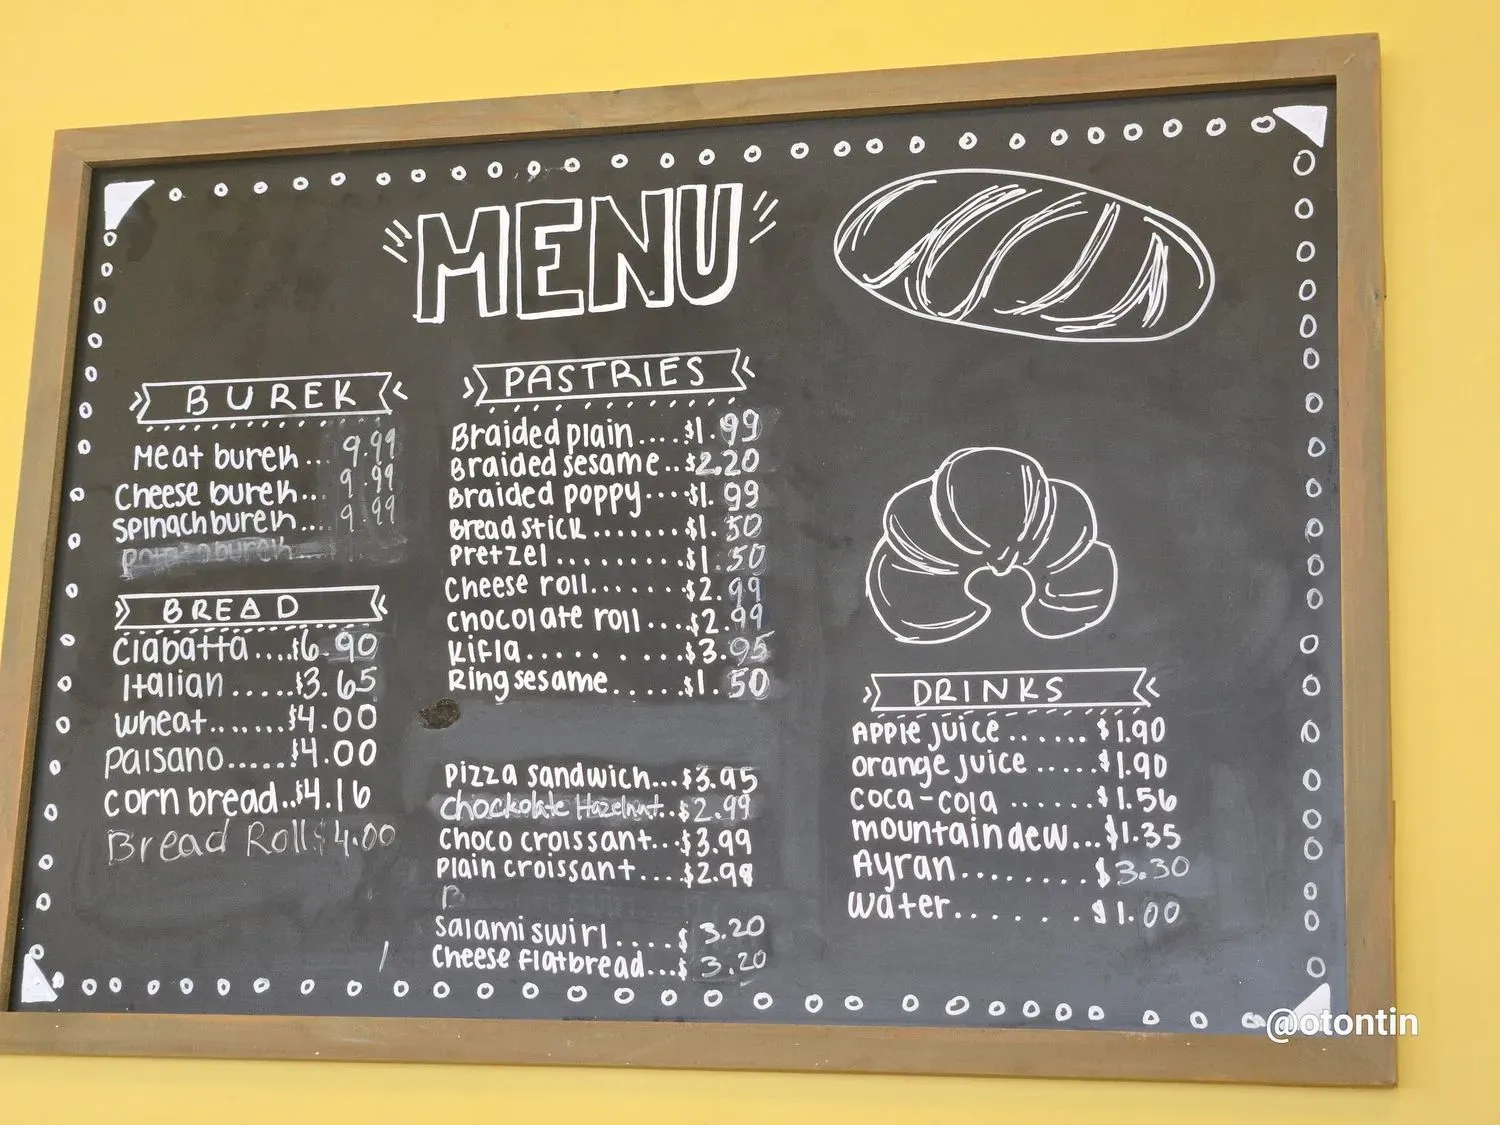 MENU
BUREK
Meat burek... 9.99
Cheese burek... 9.99
spinach burek.... 9.99
BREAD
Ciabatta....$6.90
Italian.....$3.65
wheat.......$4.00
paisano.....$4.00
corn bread..$4.16
Bread Roll $4.00
PASTRIES
Braided plain....$1.99
Braided sesame..$2.20
Braided poppy....$1.99
Bread stick.......$1.50
Pretzel.........$1.50
Cheese roll.......$2.99
chocolate roll....$2.99
Kifla..... . ....$3.95
Ring sesame......$1.50
pizza sandwich...$3.95
chockolate Hazelnut..$2.99
Choco croissant...$3.99
Plain croissant....$2.99
salami swirl....$ 3.20
Cheese Flatbread...$ 3.20
DRINKS
Apple juice......$1.90
orange juice.....$1.90
coca-cola......$1.56
mountain dew...$1.35
Ayran........$3.30
water......$1.00
@otontin